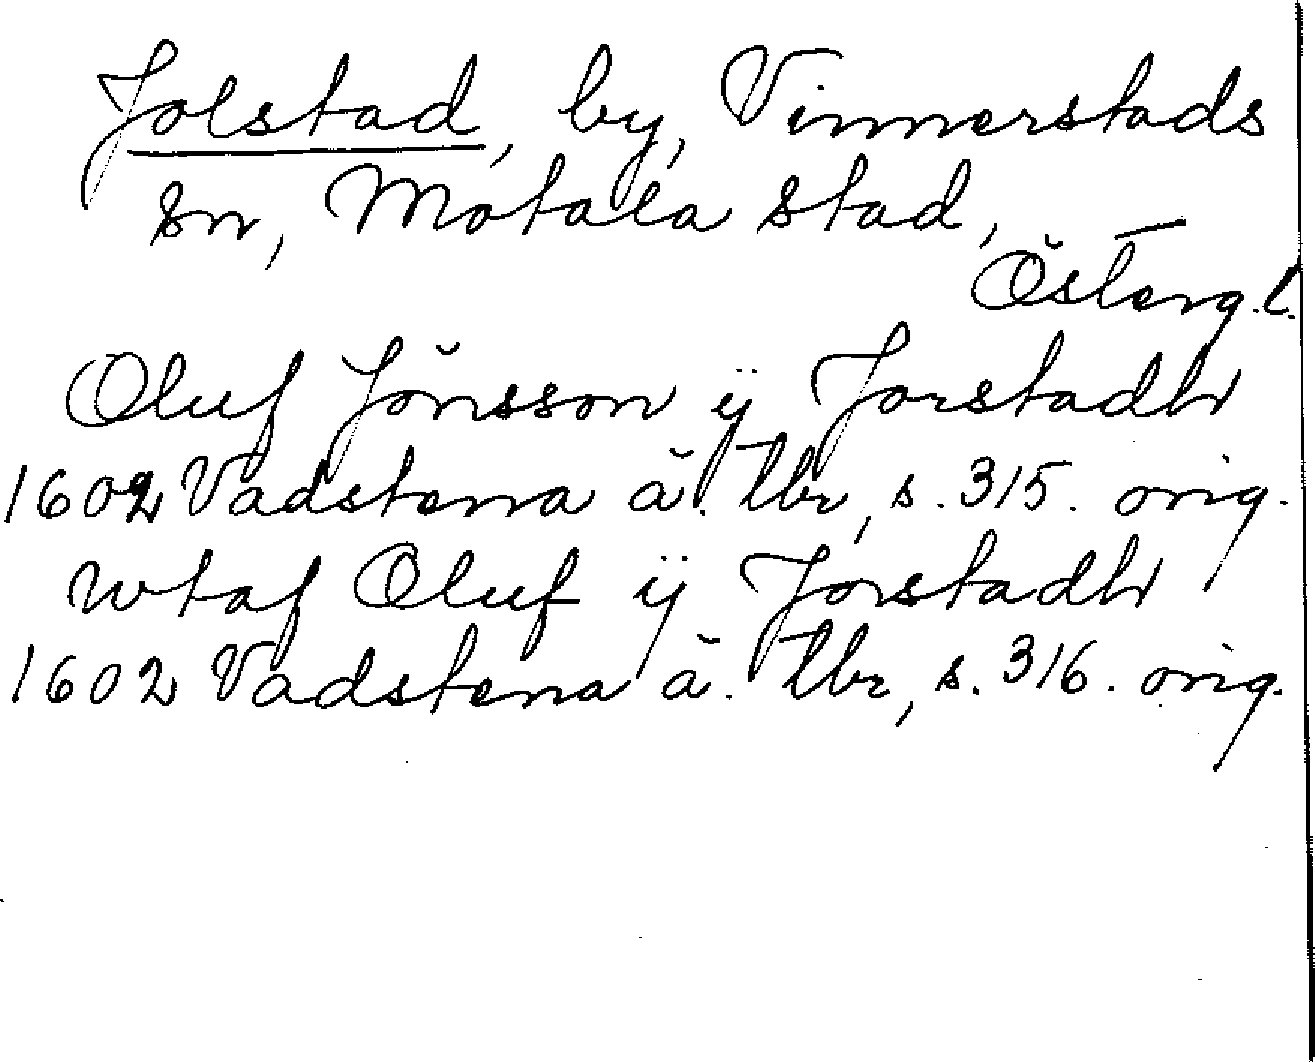 Jolstad, by, Vinnerstads
sn, Motala stad,
Österg.l.
Oluf Jönsson ÿ Jorstadh
1602 Vadstena ä. tbr, s. 315. orig.
Wtaf Oluf ÿ Jorstadh
1602 Vadstena ä. tbr, s. 316. orig.